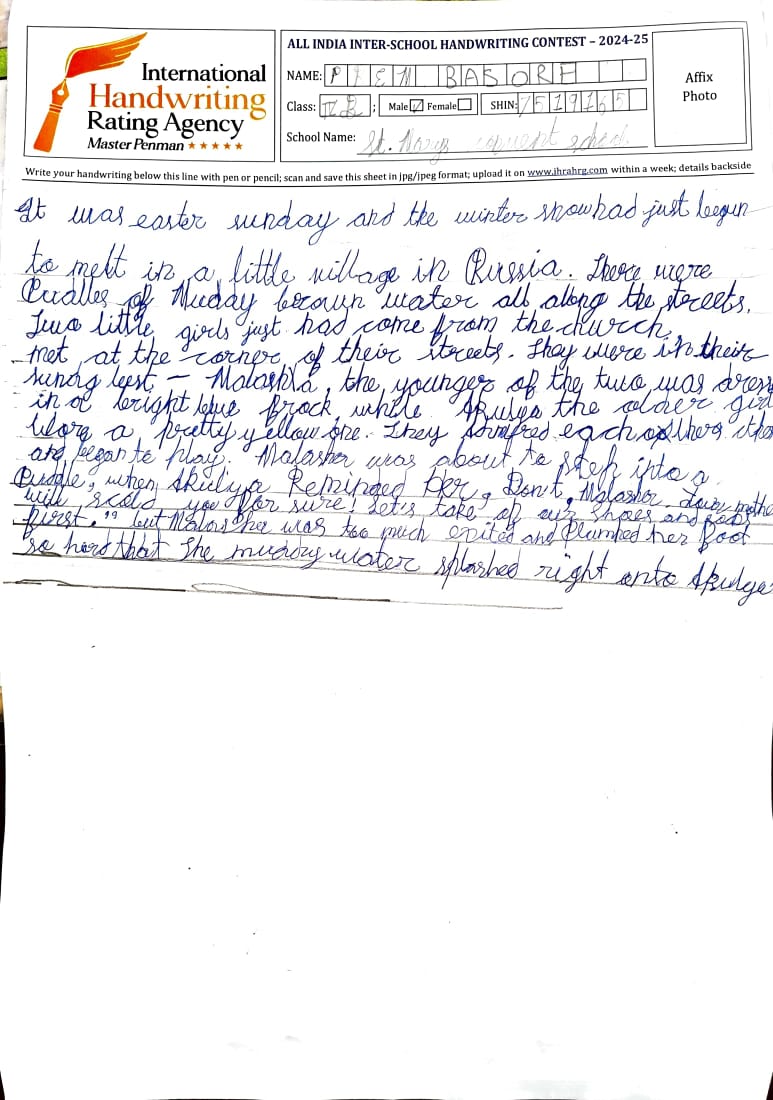 International
Handwriting
Rating Agency
Master Penman ★★★★★
ALL INDIA INTER-SCHOOL HANDWRITING CONTEST – 2024-25
NAME: BASORE
Class: IV B ; Male ☑ Female ☐ SHIN: 7519165
School Name: St. Marys convent school.
Affix
Photo
Write your handwriting below this line with pen or pencil; scan and save this sheet in jpg/jpeg format; upload it on www.ihrahrg.com within a week; details backside
It was easter sunday and the winter snow had just begun
to melt in a little village in Russia. There were
Pudlles of Muday brown water all along the streets.
Two little girls just had come from the church
met at the corner of their streets. They were in their
sunday best – Malasha, the younger of the two was dress
in a bright blue frock, while Akulya the older girl
Wore a pretty yellow one. They each others
and began to play. Malasher was about to step into a
Puddle, when Akuliya Reminded Her, Don't, Malasher. Your mothe
will scold you for sure! Let's take of our Shoes and
first." but Malascher was too much exited and Plumbed her foot
so hard that The muddy water splashed right onto Akulya